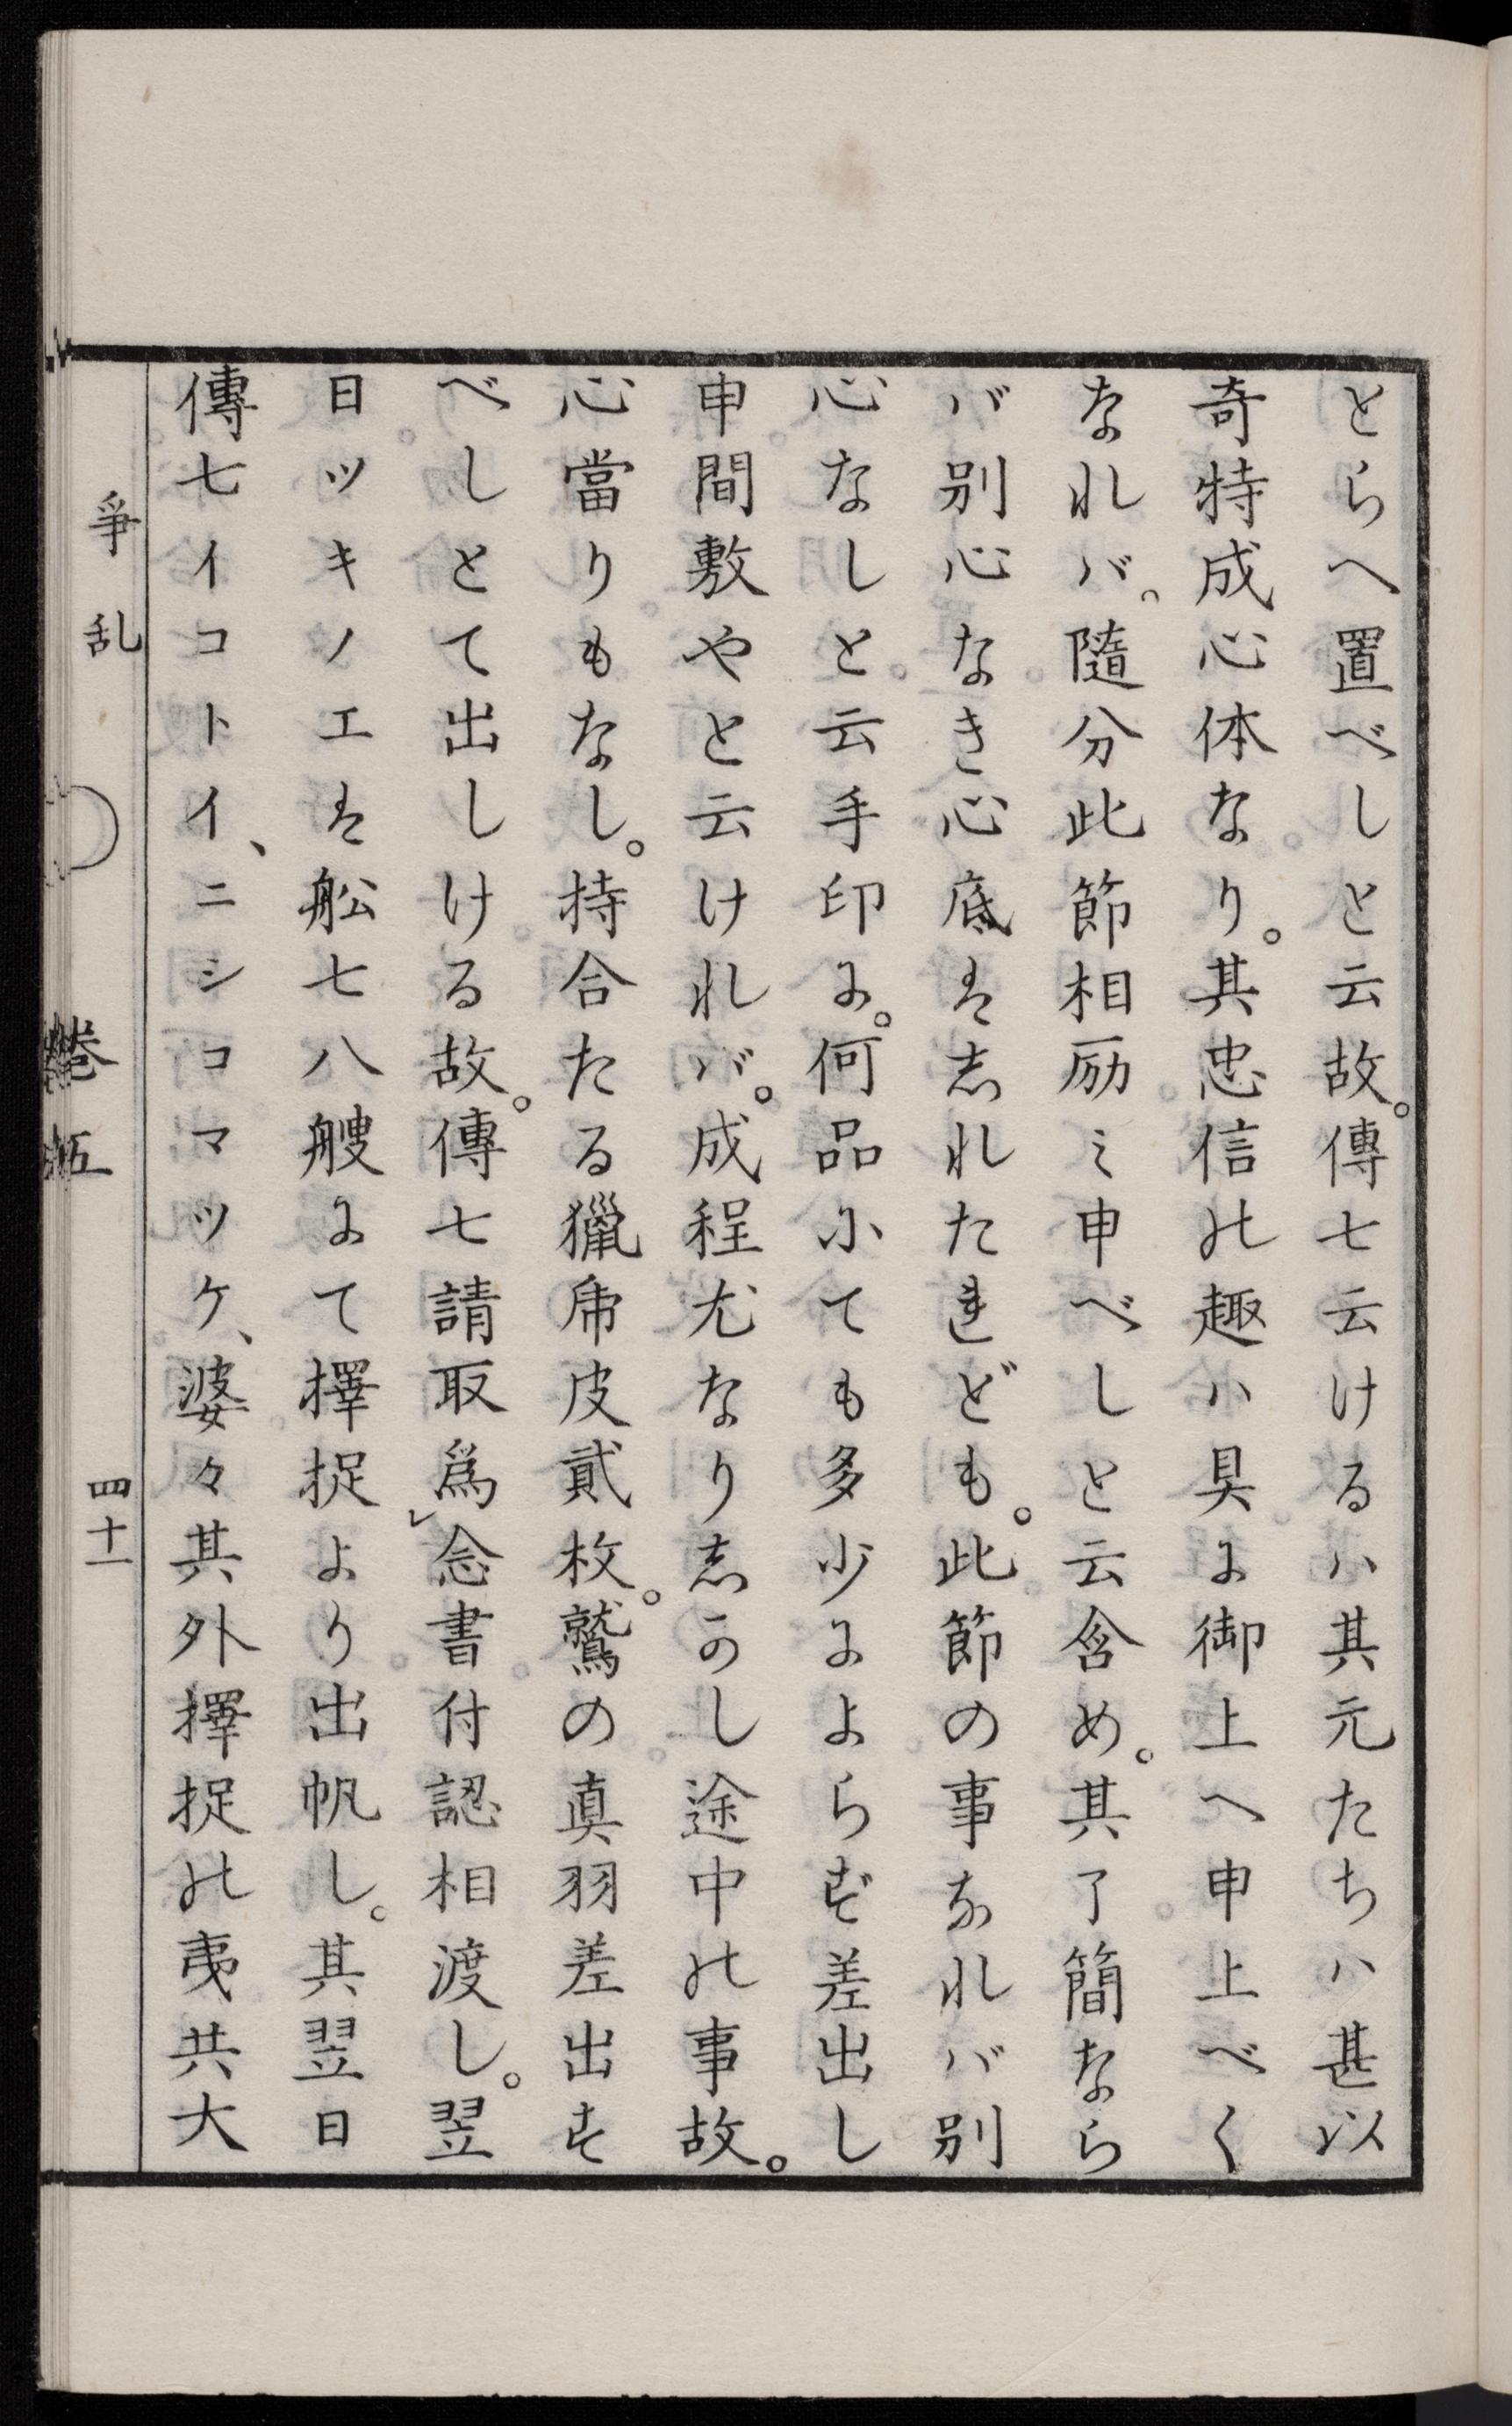 とらへ置べしと云故。傳七云けるハ其元たちハ甚以
奇特成心体なり。其忠信の趣ハ具に御上へ申上べく
なれバ。隨分此節相励ミ申べしと云含め。其了簡なら
バ別心なき心底は志れたれども。此節の事なれバ別
心なしと云手印に。何品にても多少によらず差出し
申間敷やと云けれバ。成程尤なり志かし途中の事故。
心當りもなし。持合たる獵虎皮貳枚。鷲の真羽差出す
べしとて出しける故。傳七請取爲㆑念書付認相渡し。翌
日ツキノエは舩七八艘にて擇捉より出帆し。其翌日
傳七イコトイ、ニシコマツケ、婆々其外擇捉の夷共大
爭乱
巻五
四十一